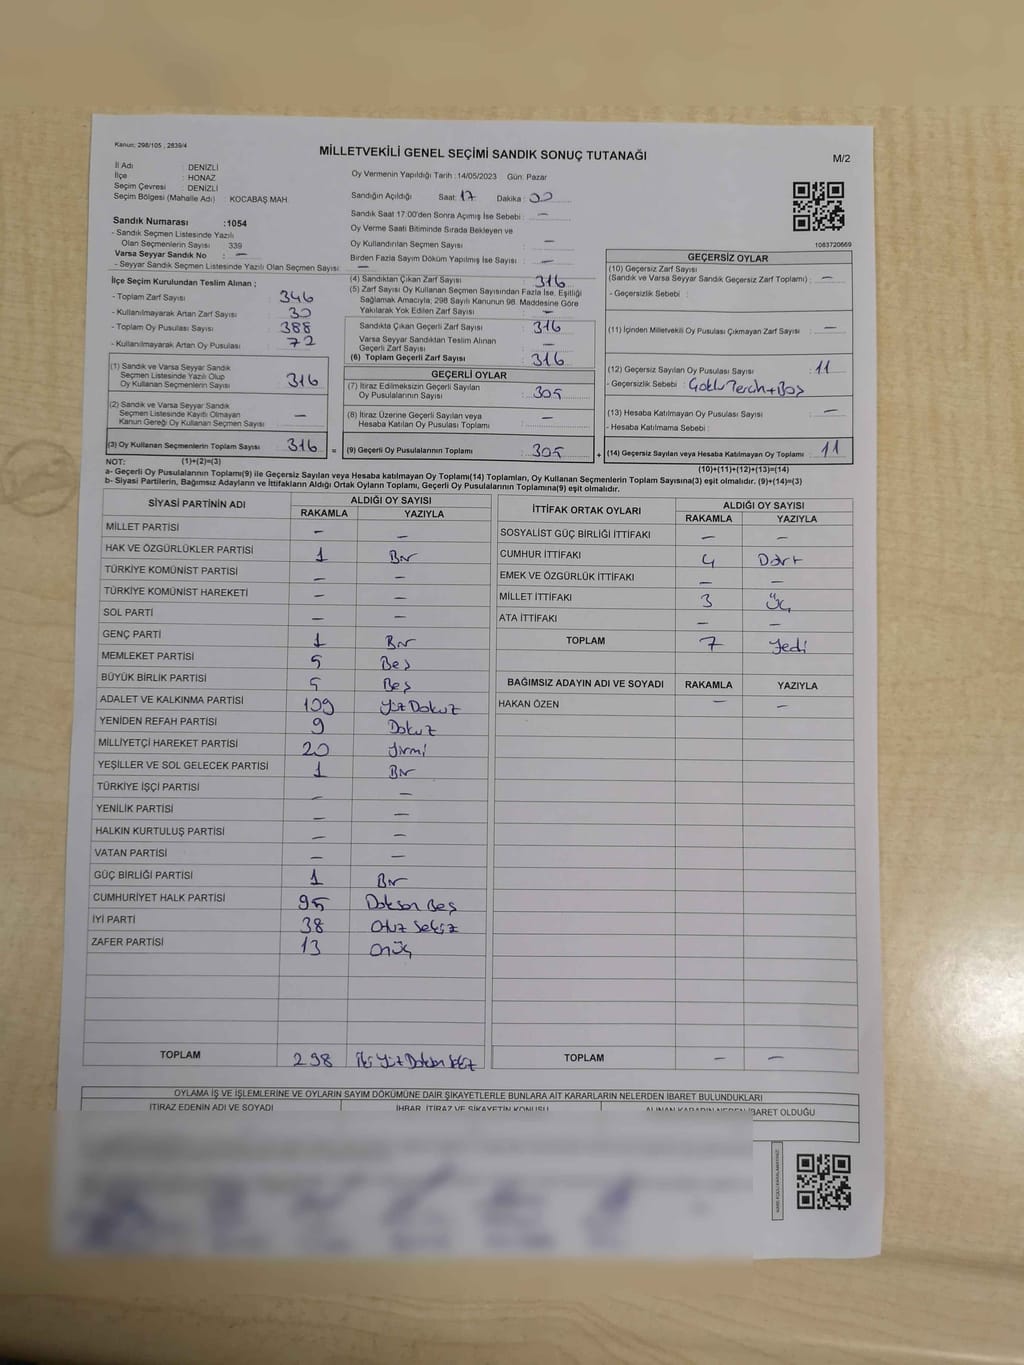 Kanun; 298/105 , 2839/4
MİLLETVEKİLİ GENEL SEÇİMİ SANDIK SONUÇ TUTANAĞI
M/2
İl Adı : DENİZLİ
İlçe : HONAZ
Seçim Çevresi : DENİZLİ
Seçim Bölgesi (Mahalle Adı) : KOCABAŞ MAH.
Oy Vermenin Yapıldığı Tarih :14/05/2023 Gün: Pazar
Sandığın Açıldığı Saat: 17 Dakika : 00
Sandık Saat 17:00'den Sonra Açımış İse Sebebi : —
Oy Verme Saati Bitiminde Sırada Bekleyen ve
Oy Kullandırılan Seçmen Sayısı : —
Birden Fazla Sayım Döküm Yapılmış İse Sayısı : —
1083720669
Sandık Numarası :1054
- Sandık Seçmen Listesinde Yazılı
Olan Seçmenlerin Sayısı 339
Varsa Seyyar Sandık No : —
- Seyyar Sandık Seçmen Listesinde Yazılı Olan Seçmen Sayısı : —
İlçe Seçim Kurulundan Teslim Alınan ;
- Toplam Zarf Sayısı : 346
- Kullanılmayarak Artan Zarf Sayısı : 30
- Toplam Oy Pusulası Sayısı : 388
- Kullanılmayarak Artan Oy Pusulası : 72
(1) Sandık ve Varsa Seyyar Sandık
Seçmen Listesinde Yazılı Olup
Oy Kullanan Seçmenlerin Sayısı : 316
(2) Sandık ve Varsa Seyyar Sandık
Seçmen Listesinde Kayıtlı Olmayan
Kanun Gereği Oy Kullanan Seçmen Sayısı : —
(3) Oy Kullanan Seçmenlerin Toplam Sayısı : 316
(4) Sandıktan Çıkan Zarf Sayısı : 316
(5) Zarf Sayısı Oy Kullanan Seçmen Sayısından Fazla İse, Eşitliği
Sağlamak Amacıyla; 298 Sayılı Kanunun 98. Maddesine Göre
Yakılarak Yok Edilen Zarf Sayısı : —
Sandıkta Çıkan Geçerli Zarf Sayısı : 316
Varsa Seyyar Sandıktan Teslim Alınan
Geçerli Zarf Sayısı : —
(6) Toplam Geçerli Zarf Sayısı : 316
GEÇERLİ OYLAR
(7) İtiraz Edilmeksizin Geçerli Sayılan
Oy Pusulalarının Sayısı : 305
(8) İtiraz Üzerine Geçerli Sayılan veya
Hesaba Katılan Oy Pusulası Toplamı : —
= (9) Geçerli Oy Pusulalarının Toplamı : 305
GEÇERSİZ OYLAR
(10) Geçersiz Zarf Sayısı
(Sandık ve Varsa Seyyar Sandık Geçersiz Zarf Toplamı) : —
- Geçersizlik Sebebi :
(11) İçinden Milletvekili Oy Pusulası Çıkmayan Zarf Sayısı : —
(12) Geçersiz Sayılan Oy Pusulası Sayısı : 11
- Geçersizlik Sebebi : Çoklu Tercih+Boş
(13) Hesaba Katılmayan Oy Pusulası Sayısı : —
- Hesaba Katılmama Sebebi :
+ (14) Geçersiz Sayılan veya Hesaba Katılmayan Oy Toplamı : 11
NOT: (1)+(2)=(3)
(10)+(11)+(12)+(13)=(14)
a- Geçerli Oy Pusulalarının Toplamı(9) ile Geçersiz Sayılan veya Hesaba katılmayan Oy Toplamı(14) Toplamları, Oy Kullanan Seçmenlerin Toplam Sayısına(3) eşit olmalıdır. (9)+(14)=(3)
b- Siyasi Partilerin, Bağımsız Adayların ve İttifakların Aldığı Ortak Oyların Toplamı, Geçerli Oy Pusulalarının Toplamına(9) eşit olmalıdır.
SİYASİ PARTİNİN ADI ALDIĞI OY SAYISI
RAKAMLA YAZIYLA
MİLLET PARTİSİ — —
HAK VE ÖZGÜRLÜKLER PARTİSİ 1 Bir
TÜRKİYE KOMÜNİST PARTİSİ — —
TÜRKİYE KOMÜNİST HAREKETİ — —
SOL PARTİ — —
GENÇ PARTİ 1 Bir
MEMLEKET PARTİSİ 5 Beş
BÜYÜK BİRLİK PARTİSİ 5 Beş
ADALET VE KALKINMA PARTİSİ 109 Yüz Dokuz
YENİDEN REFAH PARTİSİ 9 Dokuz
MİLLİYETÇİ HAREKET PARTİSİ 20 Yirmi
YEŞİLLER VE SOL GELECEK PARTİSİ 1 Bir
TÜRKİYE İŞÇİ PARTİSİ — —
YENİLİK PARTİSİ — —
HALKIN KURTULUŞ PARTİSİ — —
VATAN PARTİSİ — —
GÜÇ BİRLİĞİ PARTİSİ 1 Bir
CUMHURİYET HALK PARTİSİ 95 Doksan Beş
İYİ PARTİ 38 Otuz Sekiz
ZAFER PARTİSİ 13 Onüç
TOPLAM 298 İki Yüz Doksan Sekiz
İTTİFAK ORTAK OYLARI ALDIĞI OY SAYISI
RAKAMLA YAZIYLA
SOSYALİST GÜÇ BİRLİĞİ İTTİFAKI — —
CUMHUR İTTİFAKI 4 Dört
EMEK VE ÖZGÜRLÜK İTTİFAKI — —
MİLLET İTTİFAKI 3 Üç
ATA İTTİFAKI — —
TOPLAM 7 Yedi
BAĞIMSIZ ADAYIN ADI VE SOYADI RAKAMLA YAZIYLA
HAKAN ÖZEN — —
TOPLAM — —
OYLAMA İŞ VE İŞLEMLERİNE VE OYLARIN SAYIM DÖKÜMÜNE DAİR ŞİKAYETLERLE BUNLARA AİT KARARLARIN NELERDEN İBARET BULUNDUKLARI
İTİRAZ EDENİN ADI VE SOYADI İHBAR, İTİRAZ VE ŞİKAYETİN KONUSU ALINAN KARARIN NEDEN İBARET OLDUĞU